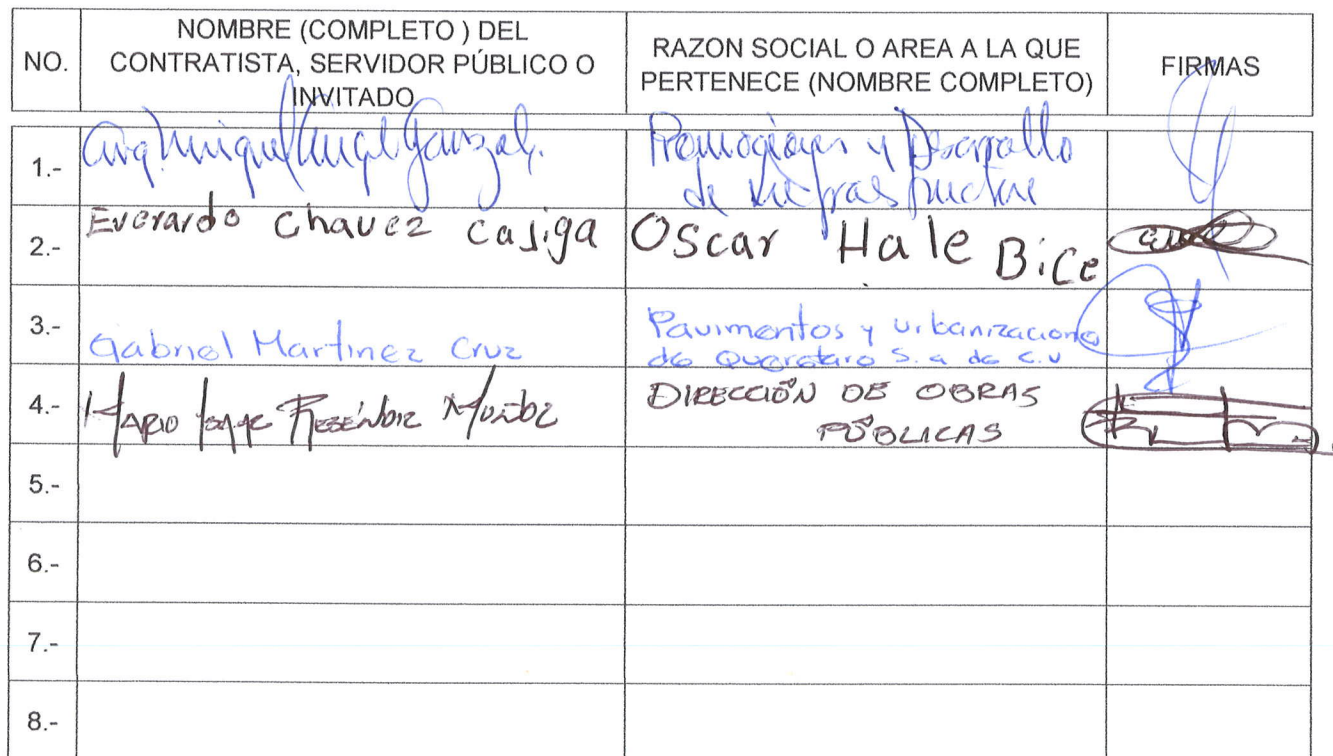 NO.
NOMBRE (COMPLETO ) DEL
CONTRATISTA, SERVIDOR PÚBLICO O
INVITADO
RAZON SOCIAL O AREA A LA QUE
PERTENECE (NOMBRE COMPLETO)
FIRMAS
1.-
Arq Miguel Angel Gonzalez.
Promociones y Desarrollo
de Infraestructura
2.-
Everardo Chavez casiga
Oscar Hale Bice
3.-
Gabriel Martinez Cruz
Pavimentos y urbanizaciones
de Queretaro S. a de C.V
4.-
MARIO ISAAC RESÉNDIZ MUÑOZ
DIRECCIÓN DE OBRAS
PÚBLICAS
5.-
6.-
7.-
8.-